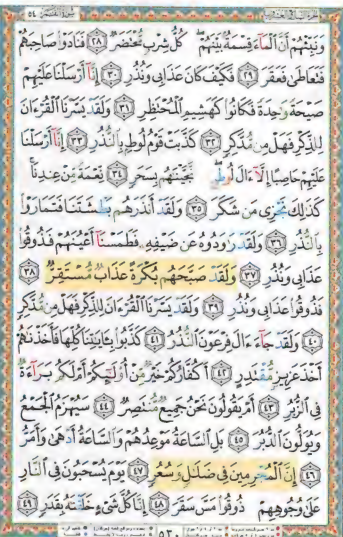 وَنَبِّئْهُمْ أَنَّ الْمَاءَ قِسْمَةٌ بَيْنَهُمْ كُلُّ شِرْبٍ مُّحْتَضَرٌ ٢٨ فَنَادَوْا صَاحِبَهُمْ
فَتَعَاطَىٰ فَعَقَرَ ٢٩ فَكَيْفَ كَانَ عَذَابِي وَنُذُرِ ٣٠ إِنَّا أَرْسَلْنَا عَلَيْهِمْ
صَيْحَةً وَاحِدَةً فَكَانُوا كَهَشِيمِ الْمُحْتَظِرِ ٣١ وَلَقَدْ يَسَّرْنَا الْقُرْءَانَ
لِلذِّكْرِ فَهَلْ مِن مُّدَّكِرٍ ٣٢ كَذَّبَتْ قَوْمُ لُوطٍ بِالنُّذُرِ ٣٣ إِنَّا أَرْسَلْنَا
عَلَيْهِمْ حَاصِبًا إِلَّا ءَالَ لُوطٍ نَّجَّيْنَاهُم بِسَحَرٍ ٣٤ نِّعْمَةً مِّنْ عِندِنَا
كَذَٰلِكَ نَجْزِي مَن شَكَرَ ٣٥ وَلَقَدْ أَنذَرَهُم بَطْشَتَنَا فَتَمَارَوْا
بِالنُّذُرِ ٣٦ وَلَقَدْ رَاوَدُوهُ عَن ضَيْفِهِ فَطَمَسْنَا أَعْيُنَهُمْ فَذُوقُوا
عَذَابِي وَنُذُرِ ٣٧ وَلَقَدْ صَبَّحَهُم بُكْرَةً عَذَابٌ مُّسْتَقِرٌّ ٣٨
فَذُوقُوا عَذَابِي وَنُذُرِ ٣٩ وَلَقَدْ يَسَّرْنَا الْقُرْءَانَ لِلذِّكْرِ فَهَلْ مِن مُّدَّكِرٍ
٤٠ وَلَقَدْ جَاءَ ءَالَ فِرْعَوْنَ النُّذُرُ ٤١ كَذَّبُوا بِـَٔايَاتِنَا كُلِّهَا فَأَخَذْنَاهُمْ
أَخْذَ عَزِيزٍ مُّقْتَدِرٍ ٤٢ أَكُفَّارُكُمْ خَيْرٌ مِّنْ أُولَٰئِكُمْ أَمْ لَكُم بَرَاءَةٌ
فِي الزُّبُرِ ٤٣ أَمْ يَقُولُونَ نَحْنُ جَمِيعٌ مُّنتَصِرٌ ٤٤ سَيُهْزَمُ الْجَمْعُ
وَيُوَلُّونَ الدُّبُرَ ٤٥ بَلِ السَّاعَةُ مَوْعِدُهُمْ وَالسَّاعَةُ أَدْهَىٰ وَأَمَرُّ
٤٦ إِنَّ الْمُجْرِمِينَ فِي ضَلَالٍ وَسُعُرٍ ٤٧ يَوْمَ يُسْحَبُونَ فِي النَّارِ
عَلَىٰ وُجُوهِهِمْ ذُوقُوا مَسَّ سَقَرَ ٤٨ إِنَّا كُلَّ شَيْءٍ خَلَقْنَاهُ بِقَدَرٍ ٤٩
٥٣٠